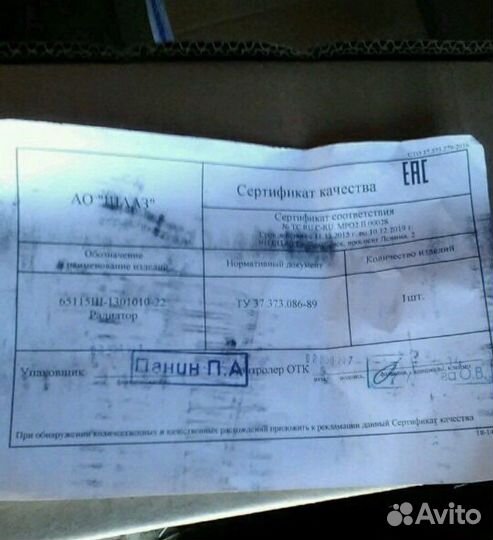 СТО 37.373.279-2016
АО "ШААЗ"
Сертификат качества
EAC
Сертификат соответствия
№ ТС RU C-RU. МР02.П.00028
Срок с 11.12.2015 г. по 10.12.2019 г.
проспект Ленина, 2
Обозначение
и наименование изделия
Нормативный документ
Количество изделий
65115Ш-1301010-22
Радиатор
ТУ 37.373.086-89
1шт.
Упаковщик
Панин П.А
контролер ОТК
О.В.
При обнаружении количественных и качественных расхождений приложить к рекламации данный Сертификат качества
Avito